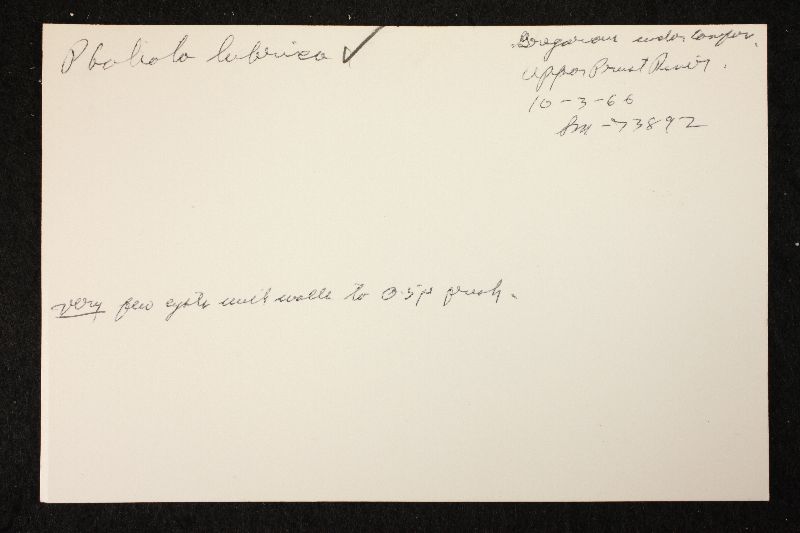 Pholiota lubrica ✓
Gregarious under conifer.
Upper Priest River.
10-3-66
Sm-73892
very few cysts with walls to 0.5µ